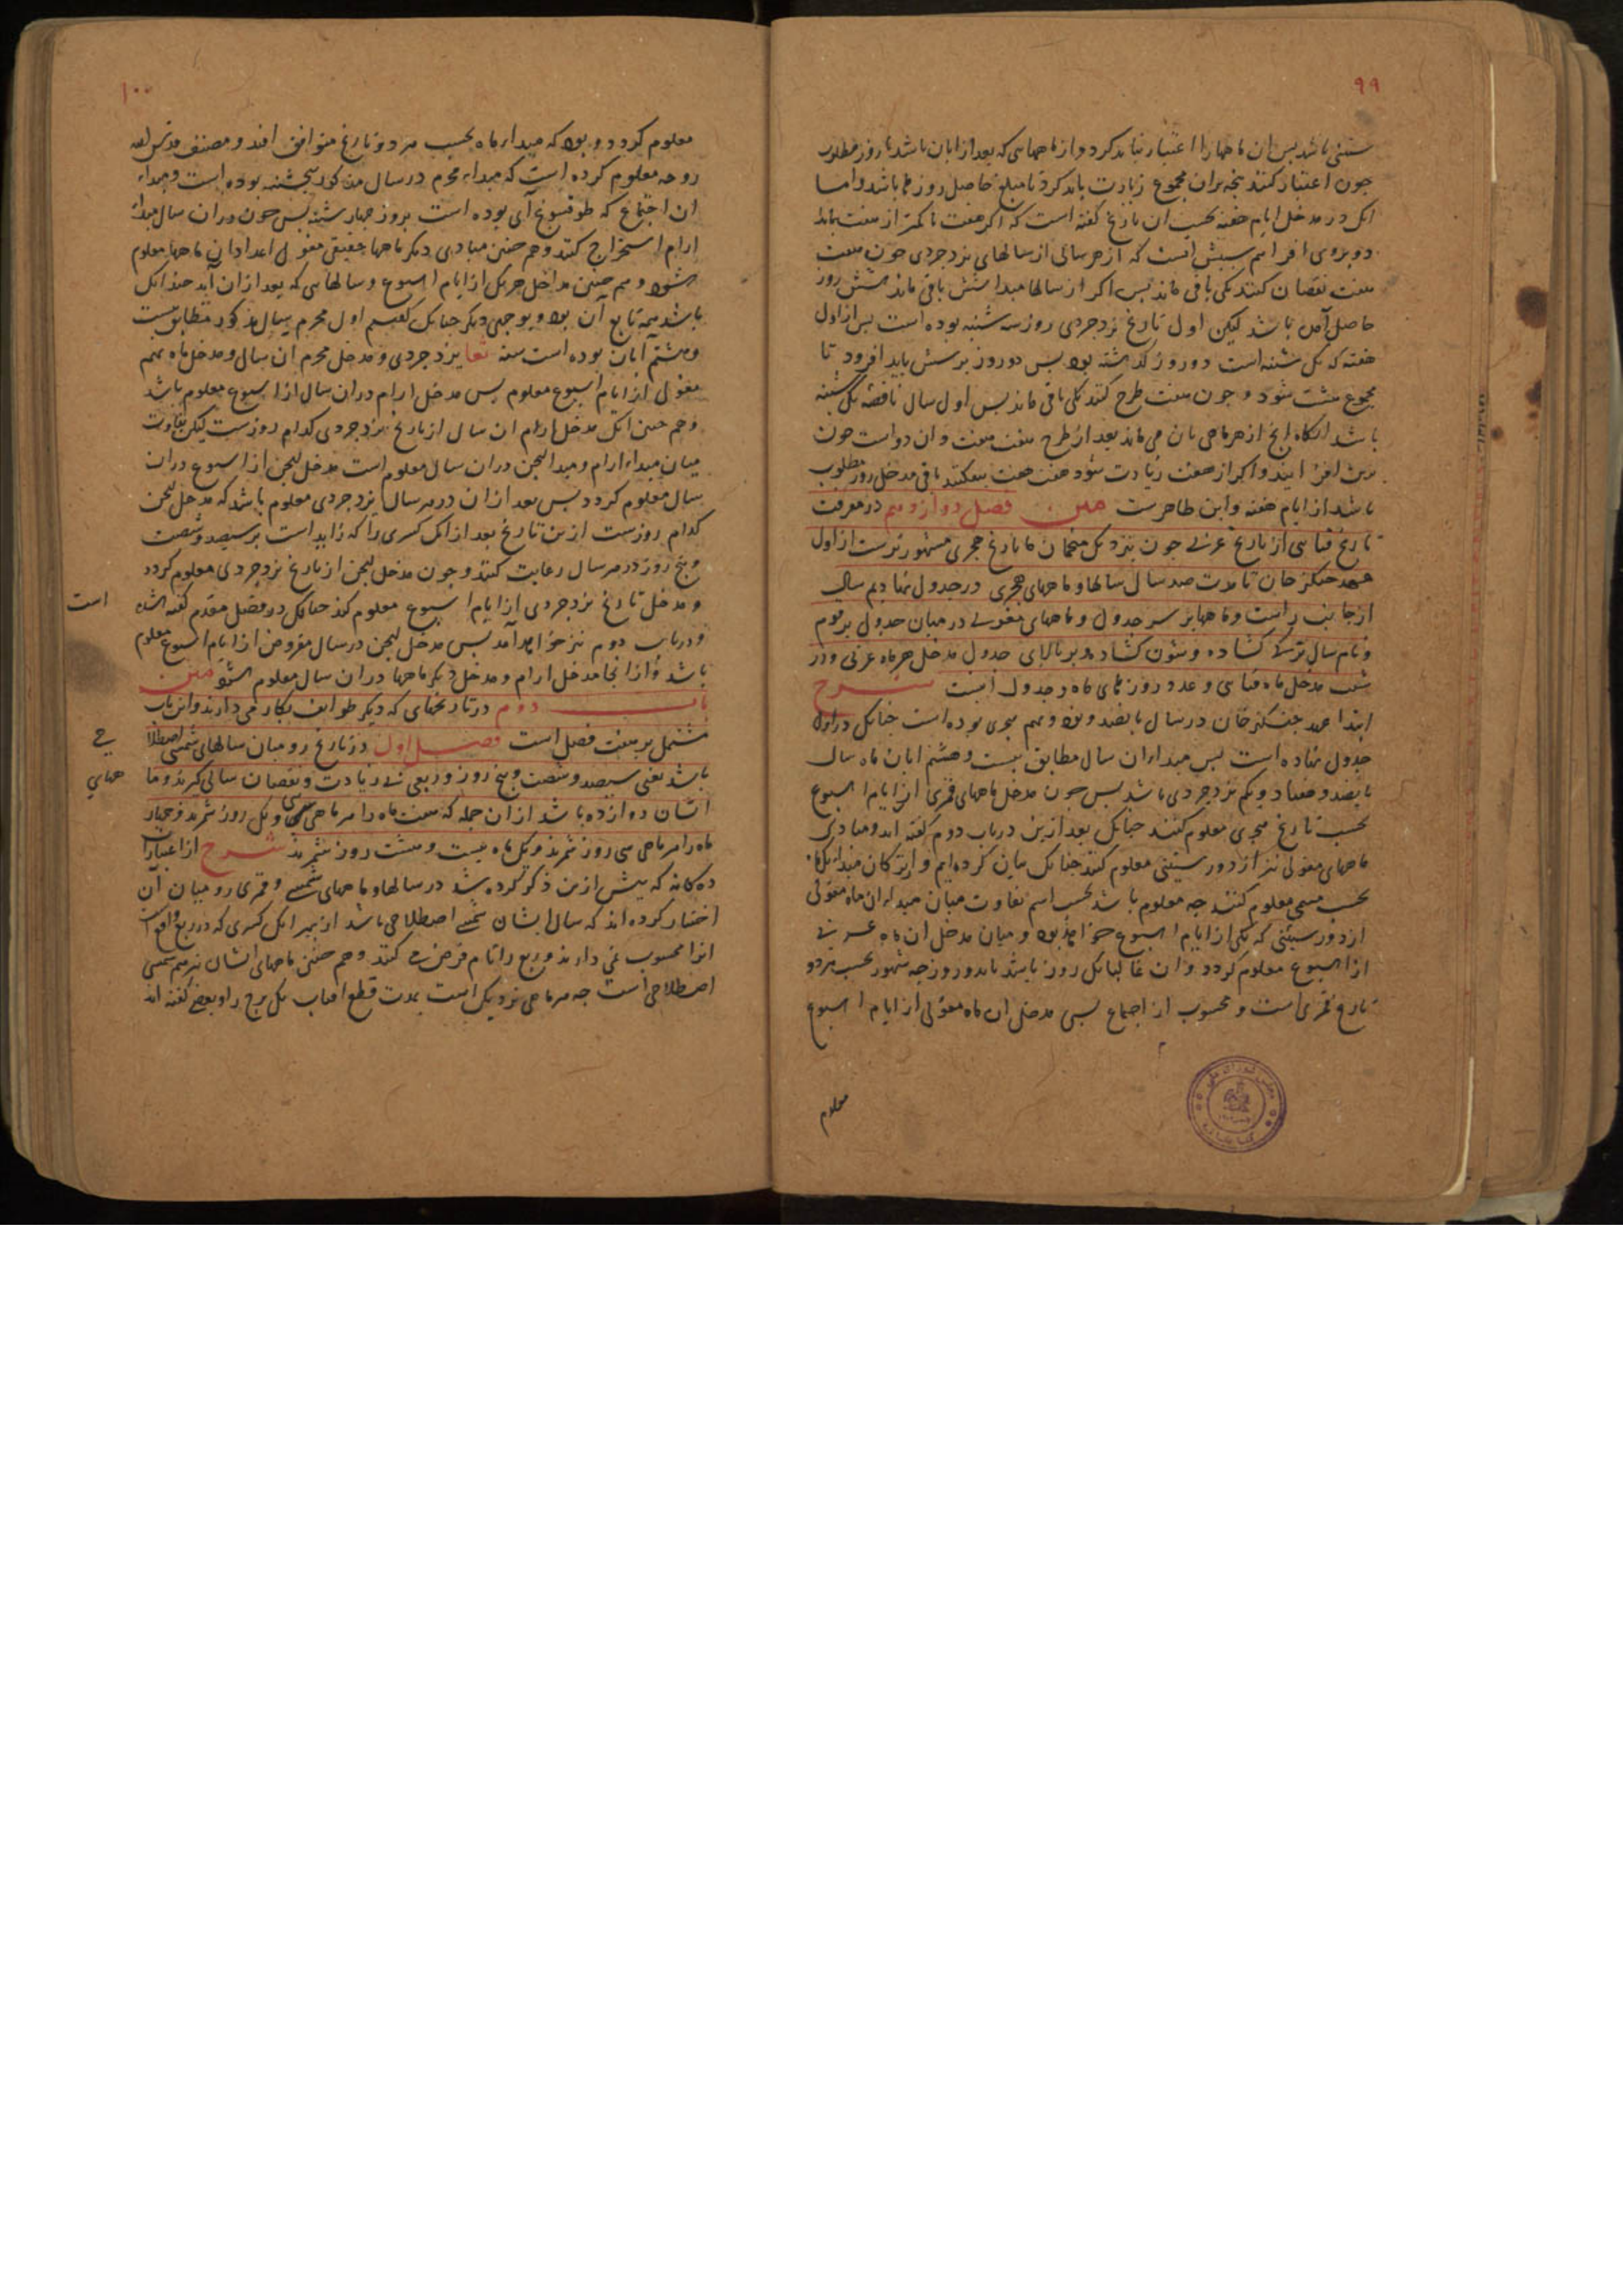 ۹۹
ستینی باشد پس ان ماهها را اعتبار نباید کرد و از ماههایی که بعد از ابان باشد تا روز مطلوب
چون اعتبار کنند پنجه بران مجموع زیادت باید کرد تا مبلغ حاصل روزها باشد و اما
انک در مدخل ایام هفته بحسب ان تاریخ کفته است که اگر هفت یا کمتر از هفت بماند
دو بروی افزاییم سببش انست که از هر سالی از سالهای یزدجردی چون هفت
هفت نقصان کنند یکی باقی ماند پس اکر از سالها مبدا شش باقی ماند شش روز
حاصل آمده باشد لیکن اول تاریخ یزدجردی روز سه شنبه بوده است پس از اول
هفته که یک شنبه است دو روز گذشته بود پس دو روز بر شش باید افزود تا
مجموع هشت شود و چون هفت طرح کنند یکی باقی ماند پس اول سال ناقصه یک شنبه
باشد انکاه انچ از هر ماهی بان می ماند بعد از طرح هفت هفت و ان دو است چون
برین افزایند و اکر از هفت زیادت شود هفت هفت بیفکنند باقی مدخل روز مطلوب
باشد از ایام هفته و این ظاهرست متن فصل دوازدهم در معرفت
تاریخ قتایی از تاریخ عربی چون نزدیک منجمان ما تاریخ هجری مشهورترست از اول
عهد چنکز خان تا مدت صد سال سالها و ماههای هجری در جدول نهادیم سال
از جانب راست و ماهها بر سر جدول و ماههای مغولی در میان جدول مرقوم
و نام سال ترکا کشاده و ستون کشاده و بر بالای جدول مدخل هر ماه عربی و در
شیب مدخل ماه قتایی و عدد روزهای ماه و جدول اینست شرح
ابتدا عهد چنکز خان در سال پانصد و نود و نهم هجری بوده است چنانک در اول
جدول نهاده است پس مبدا ان سال مطابق بیست و هشتم ابان ماه سال
پانصد و هفتاد و یکم یزدجردی باشد پس چون مدخل ماههای قمری از ایام اسبوع
بحسب تاریخ هجری معلوم کنند چنانک بعد ازین در باب دوم کفته اید و مبادی
ماههای مغولی نیز از دور ستینی معلوم کنند چنانک بیان کرده ایم و از ترکان مبدا یک ماه
بحسب مسمی معلوم کنند چه معلوم باشد بحسب اسم تفاوت میان مبدا ان ماه مغولی
از دور ستینی که یکی از ایام اسبوع خواهد بود و میان مدخل ان ماه عربی
از اسبوع معلوم کردد و ان غالبا یک روز باشد یا دو روز چه شهور بحسب هر دو
تاریخ قمری است و محسوب از اجتماع پس مدخل ان ماه مغولی از ایام اسبوع
معلوم
۱۰۰
معلوم کردد و بود که مبدا ماه بحسب هر دو تاریخ متوافق افتد و مصنف قدس الله
روحه معلوم کرده است که مبداء محرم در سال مذکور پنجشنبه بوده است و مبداء
ان اجتماع که طوقسونج آی بوده است بروز چهارشنبه پس چون در ان سال مبداء
ارام استخراج کنند و هم چنین مبادی دیکر ماهها حقیقی مغول اعداد ان ماهها معلوم
شود و هم چنین مداخل هر یک از ایام اسبوع و سالهایی که بعد از ان آید چندانک
باشد همه تابع آن بود و بوجهی دیکر چنانک کفتیم اول محرم سال مذکور مطابق بیست
و هشتم آبان بوده است سنه ثعا یزدجردی و مدخل محرم ان سال و مدخل ماه نهم
مغول از ایام اسبوع معلوم پس مدخل ارام در ان سال از اسبوع معلوم باشد
و هم چنین انک مدخل ارام ان سال از تاریخ یزدجردی کدام روزست لیکن تفاوت
میان مبداء ارام و مبدا لیجن در ان سال معلوم است مدخل لیجن از اسبوع در ان
سال معلوم کردد پس بعد از ان در هر سال یزدجردی معلوم باشد که مدخل لیجن
کدام روزست ازین تاریخ بعد از انک کسری را که زاید است بر سیصد و شصت
و پنج روز در هر سال رعایت کنند و چون مدخل لیجن از تاریخ یزدجردی معلوم کردد
و مدخل تاریخ یزدجردی از ایام اسبوع معلوم کند چنانک در فصل مقدم کفته شده
است
و در باب دوم نیز خواهد آمد پس مدخل لیجن در سال مفروض از ایام اسبوع معلوم
باشد و از انجا مدخل ارام و مدخل دیکر ماهها در ان سال معلوم شود متن
باب دوم در تاریخهای که دیکر طوایف بکار می دارند و این باب
مشتمل بر هفت فصل است فصل اول در تاریخ رومیان سالهای شمسی اصطلا
حی
باشد یعنی سیصد و شصت و پنج روز و ربعی بی زیادت و نقصان سالی کیرند و ما
ههای
ایشان دوازده باشد از ان جمله که هفت ماه را هر ماهی سی و یک روز شمرند و چهار
ماه را هر ماهی سی روز شمرند و یک ماه بیست و هشت روز شمرند شرح از اعتبارات
ده کانه که پیش ازین ذکر کرده شد در سالها و ماههای شمسی و قمری رومیان ان
اختیار کرده اند که سال ایشان شمسی اصطلاحی باشد از بهر انک کسری که در ربع واقع است
انرا محسوب نمی دارند و ربع را تمام فرض می کنند و هم چنین ماههای ایشان نیز هم شمسی
اصطلاحی است چه هر ماهی نزدیک است بمدت قطع افتاب یک برج را و بعضی کفته اند